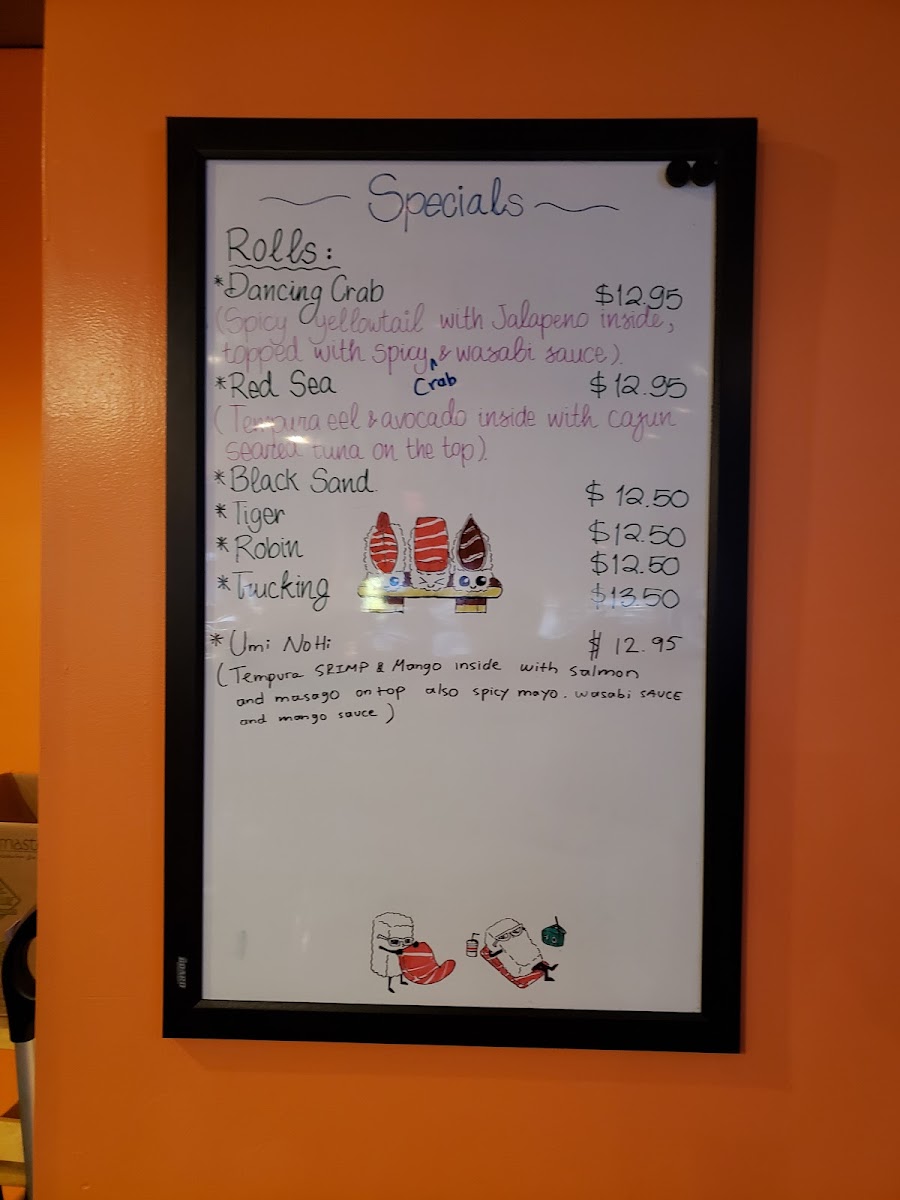 Specials
Rolls:
*Dancing Crab $12.95
(Spicy yellowtail with Jalapeno inside,
topped with spicy ^ & wasabi sauce).
Crab
*Red Sea $12.95
(Tempura eel & avocado inside with cajun
seared tuna on the top).
*Black Sand $12.50
*Tiger $12.50
*Robin $12.50
*Trucking $13.50
*Umi No Hi $12.95
(Tempura SRIMP & Mango inside with salmon
and masago on top also spicy mayo. wasabi SAUCE
and mango sauce)